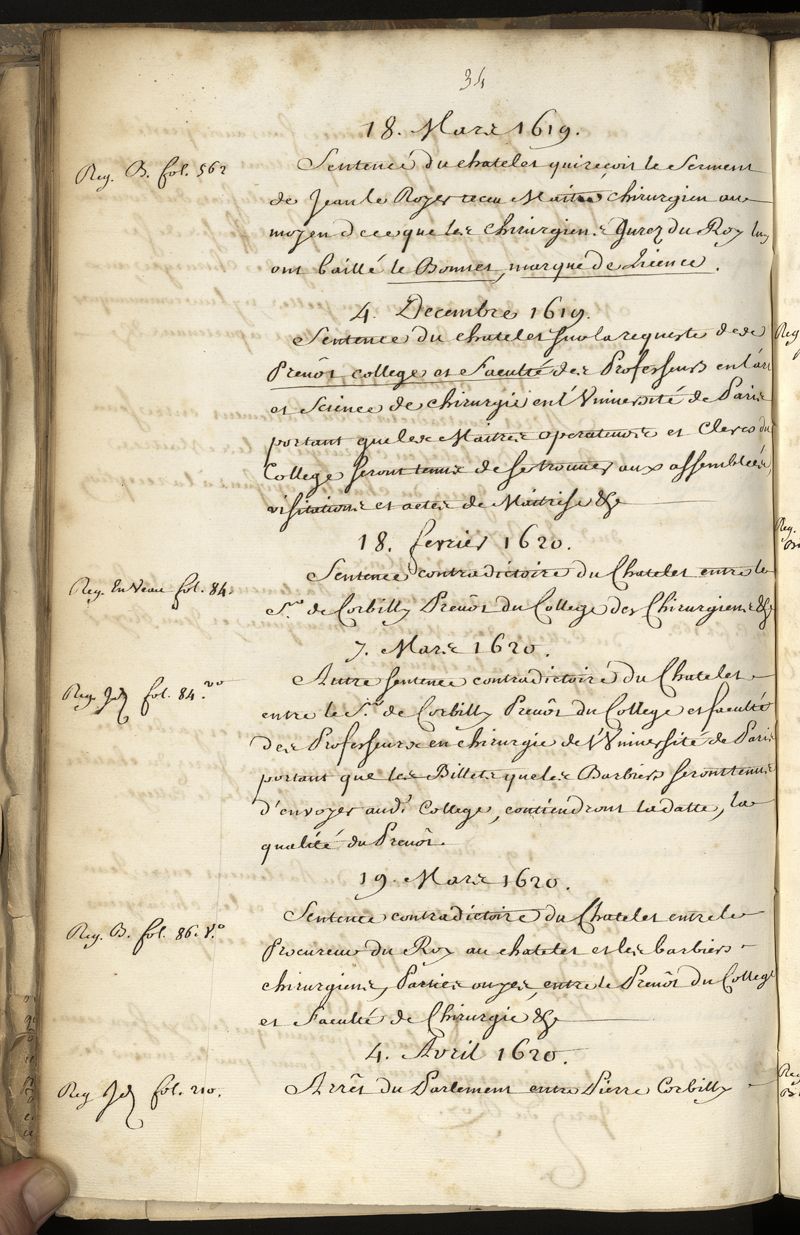 34
18. Mars 1619.
Reg. B. fol. 562
Sentence du chatelet qui reçoit le Serment
de Jean le Royer receu Maitre chirurgien au
moyen de ce que les chirurgiens Jurez du Roy luy
ont baillé le Bonnet, marque de Licence.
4. Decembre 1619.
Sentence du chatelet sur la requeste des
Prevôt college et Faculté des Professeurs en l'art
et Science de chirurgie en l'Université de Paris
portant que les Maitres operateurs et Clercs du
College seront tenus de se trouver aux assemblées,
visitations et actes de Maitrise &c
18. fevrier 1620.
Reg. En Veau fol. 84.
Sentence contradictoire du Chatelet entre le
S.r de Corbilly Prevôt du College des Chirurgiens &c
7. Mars 1620.
Reg. Id fol. 84. vo
Autre sentence contradictoire du Chatelet
entre le S.r de Corbilly Prevôt du College et faculté
des Professeurs en chirurgie de l'Université de Paris
portant que les Billets que les Barbiers seront tenus
d'envoyer aud.t College, contiendront la datte, la
qualité du Prevôt.
19. Mars 1620.
Reg. B. fol. 86. V.o
Sentence contradictoire du Chatelet entre le
Procureur du Roy au chatelet et les barbiers
chirurgiens, Parties ouyes, entre le Prevôt du College
et Faculté de Chirurgie &c
4. Avril 1620.
Reg Id fol. 210.
Arrêt du Parlement entre Pierre Corbilly